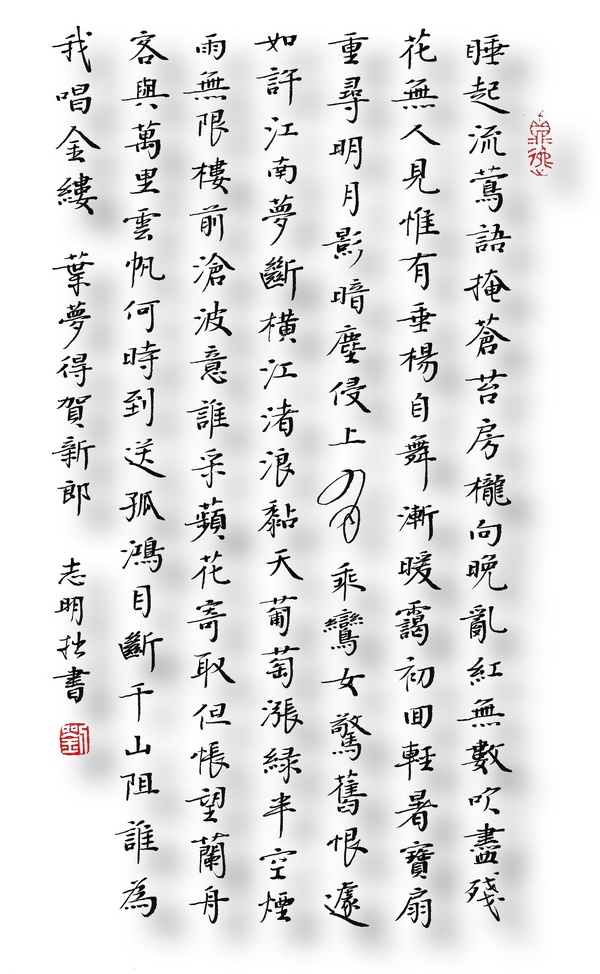 睡起流鶯語掩蒼苔房櫳向晚亂紅無數吹盡殘
花無人見惟有垂楊自舞漸暖靄初回輕暑寶扇
重尋明月影暗塵侵上有乘鸞女驚舊恨遽
如許江南夢斷橫江渚浪黏天葡萄漲綠半空煙
雨無限樓前滄波意誰采蘋花寄取但悵望蘭舟
容與萬里雲帆何時到送孤鴻目斷千山阻誰為
我唱金縷 葉夢得賀新郎 志明拙書
劉